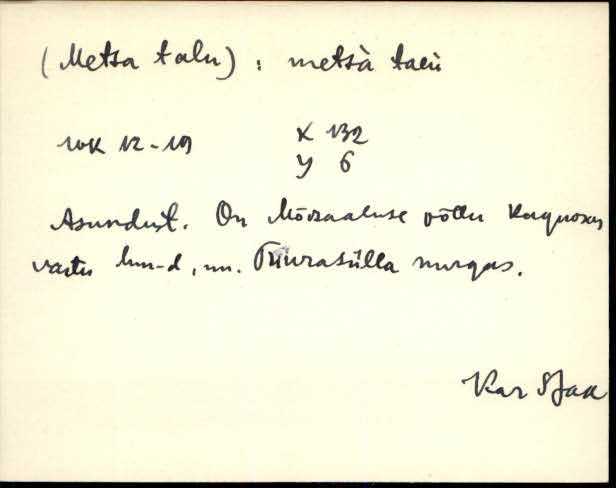 (Metsa talu) : metsà talù
WK 12-19 X 132
Y 6
Asundust. On Mõisaaluse põllu kagunosas
vastu hm-d, nn. Tiurasilla nurgas.
Kar